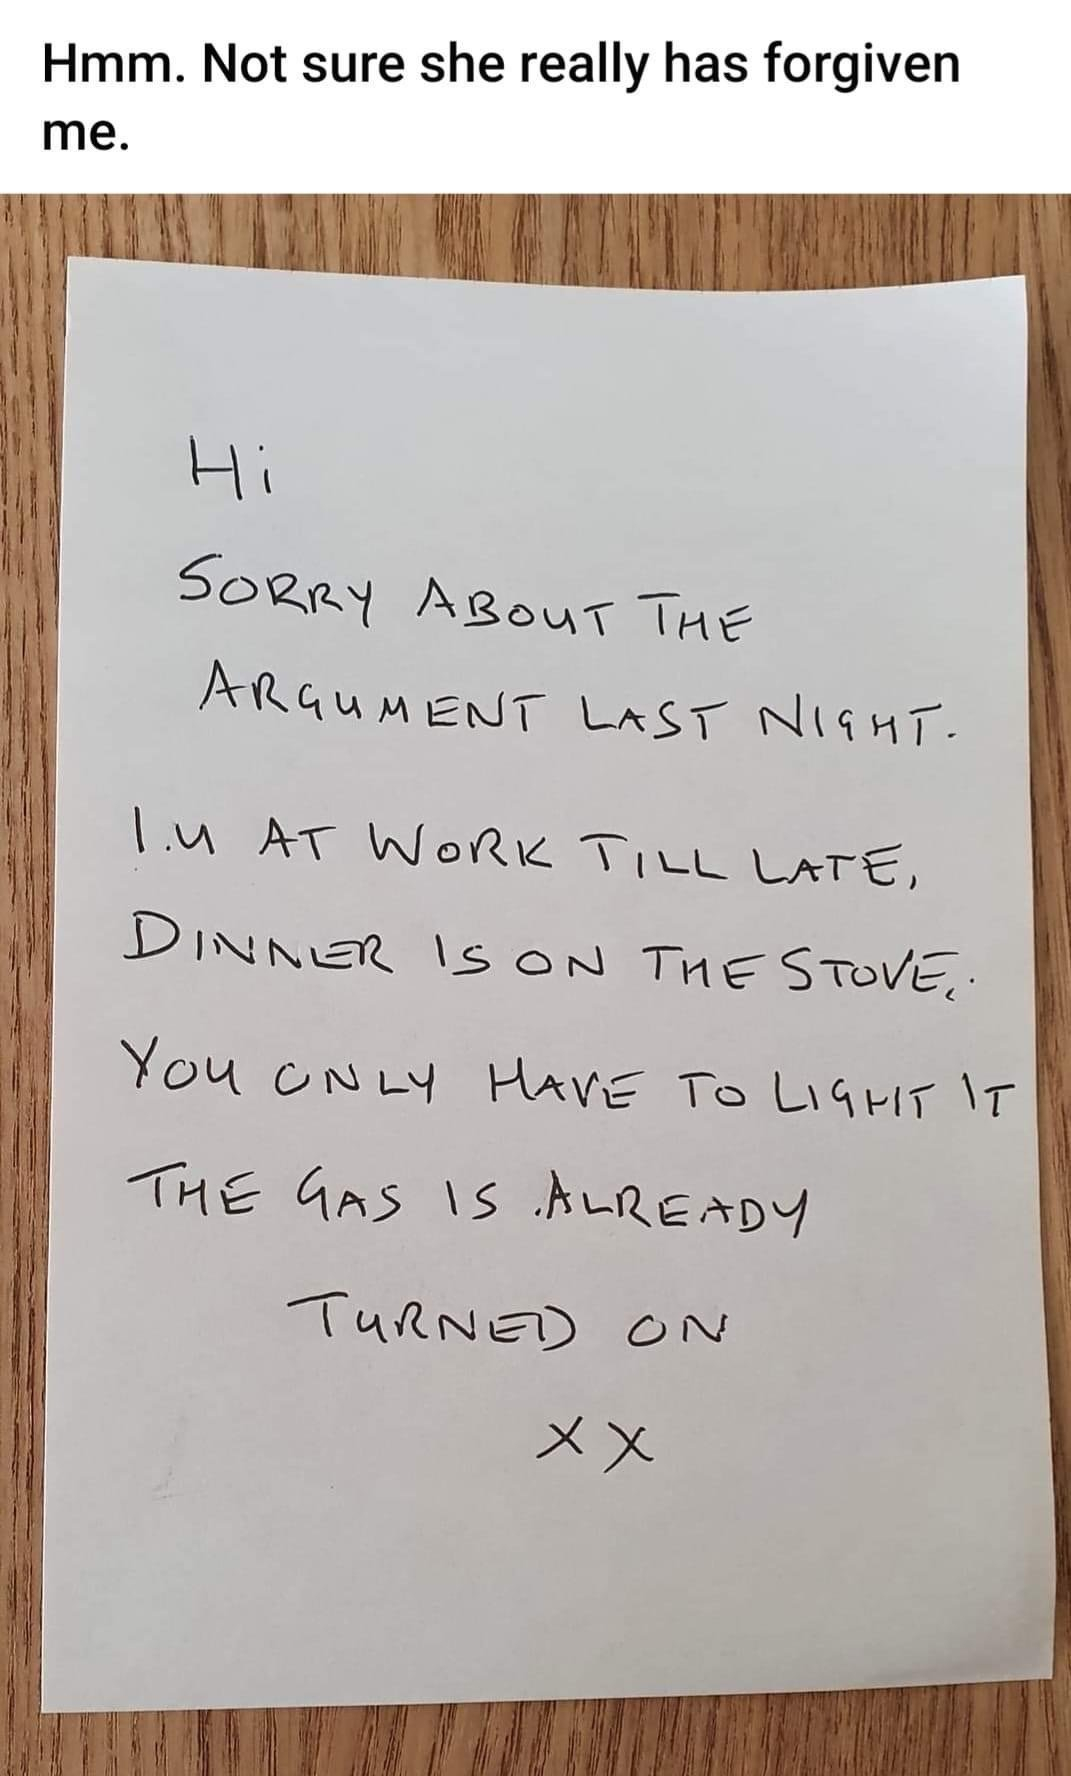 Hmm. Not sure she really has forgiven
me.
Hi
SORRY ABOUT THE
ARGUMENT LAST NIGHT.
I.M AT WORK TILL LATE,
DINNER IS ON THE STOVE,.
YOU ONLY HAVE TO LIGHT IT
THE GAS IS ALREADY
TURNED ON
XX